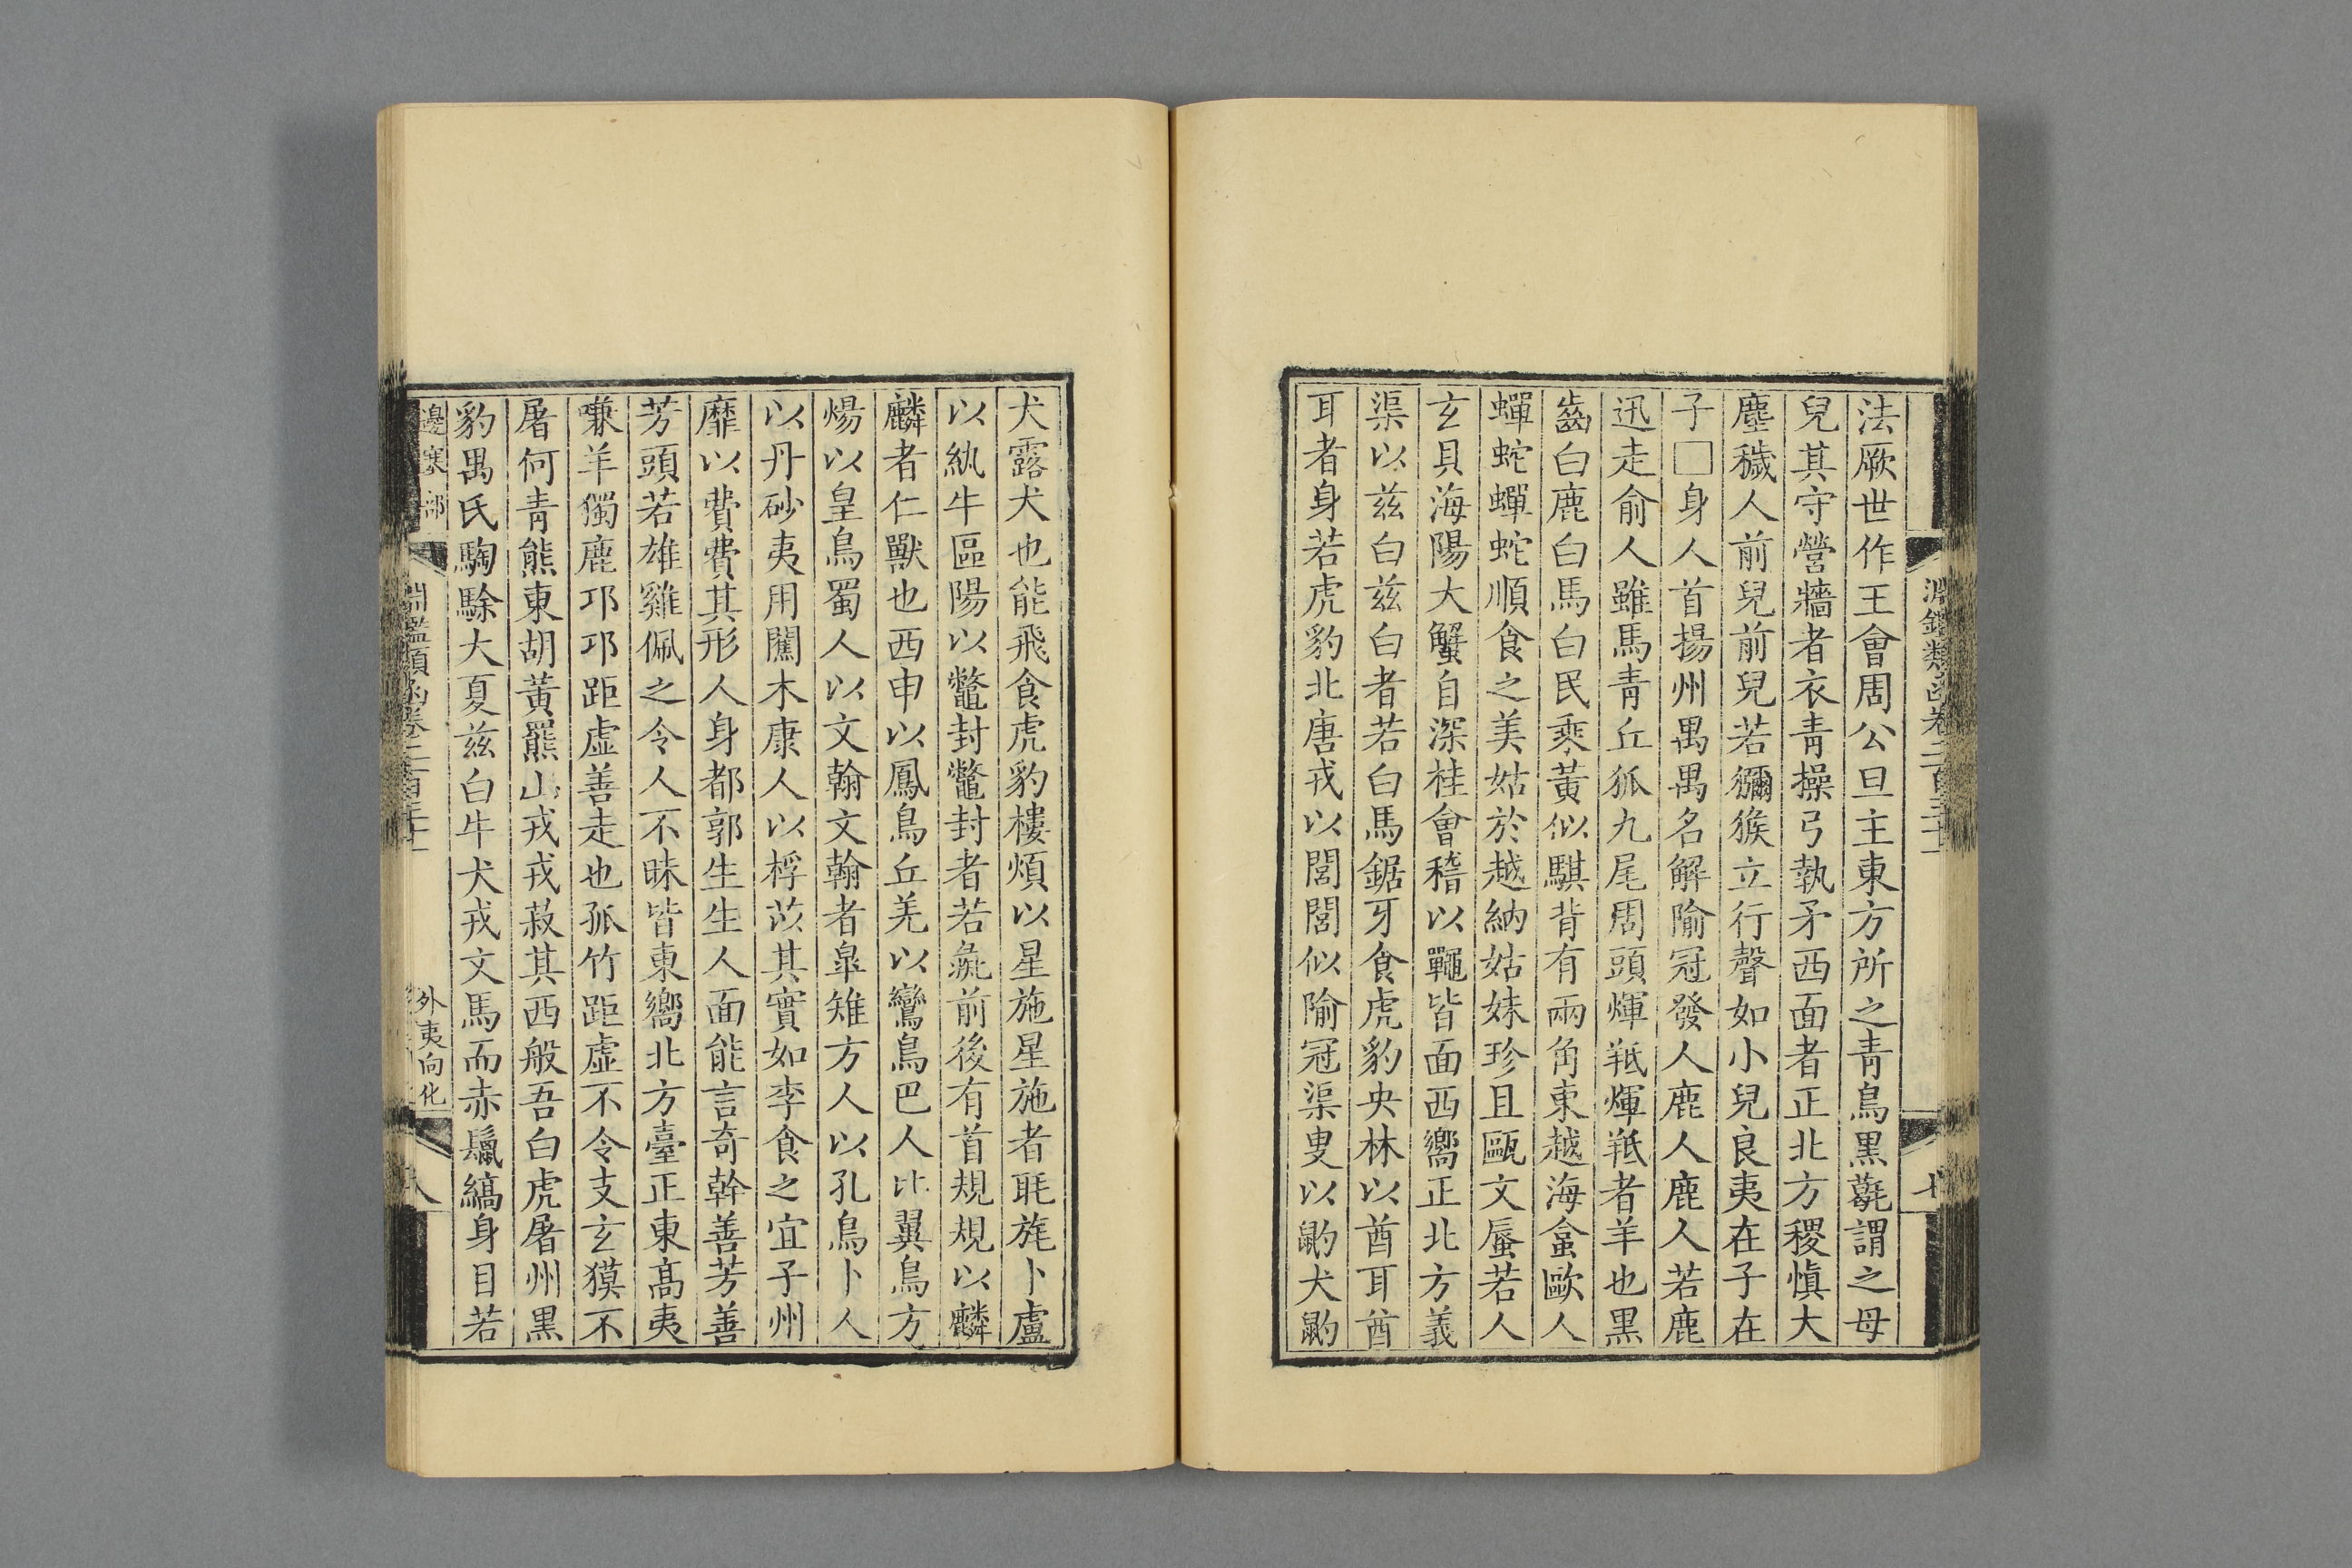 法厥世作王會周公旦主東方所之青鳥黑𪏭謂之母
兒其守營牆者衣青操弓執矛西面者正北方稷慎大
塵穢人前兒前兒若獼猴立行聲如小兒良夷在子在
子□身人首揚州禺禺名解隃冠發人鹿人鹿人若鹿
迅走俞人雖馬青丘狐九尾周頭煇羝煇羝者羊也黑
齒白鹿白馬白民乘黃似騏背有兩角東越海盒歐人
蟬蛇蟬蛇順食之美姑於越納姑妹珍且甌文蜃若人
玄貝海陽大蟹自深桂會稽以䵷皆面西嚮正北方義
渠以茲白茲白者若白馬鋸牙食虎豹央林以酋耳酋
耳者身若虎豹北唐戎以閭閭似隃冠渠叟以䶂犬䶂
犬露犬也能飛食虎豹樓煩以星施星施者珥旄卜盧
以紈牛區陽以鼈封鼈封者若彘前後有首規規以麟
麟者仁獸也西申以鳳鳥丘羌以鸞鳥巴人比翼鳥方
煬以皇鳥蜀人以文翰文翰者皐雉方人以孔鳥卜人
以丹砂夷用闟木康人以桴苡其實如李食之宜子州
靡以費費其形人身都郭生生人面能言奇幹善芳善
芳頭若雄雞佩之令人不昧皆東嚮北方臺正東高夷
嗛羊獨鹿邛邛距虛善走也孤竹距虛不令支玄獏不
屠何青熊東胡黃羆山戎戎菽其西般吾白虎屠州黑
豹禺氏騊駼大夏茲白牛犬戎文馬而赤鬣縞身目若
邊塞部
淵鑑類函卷二百三十
外夷向化
八